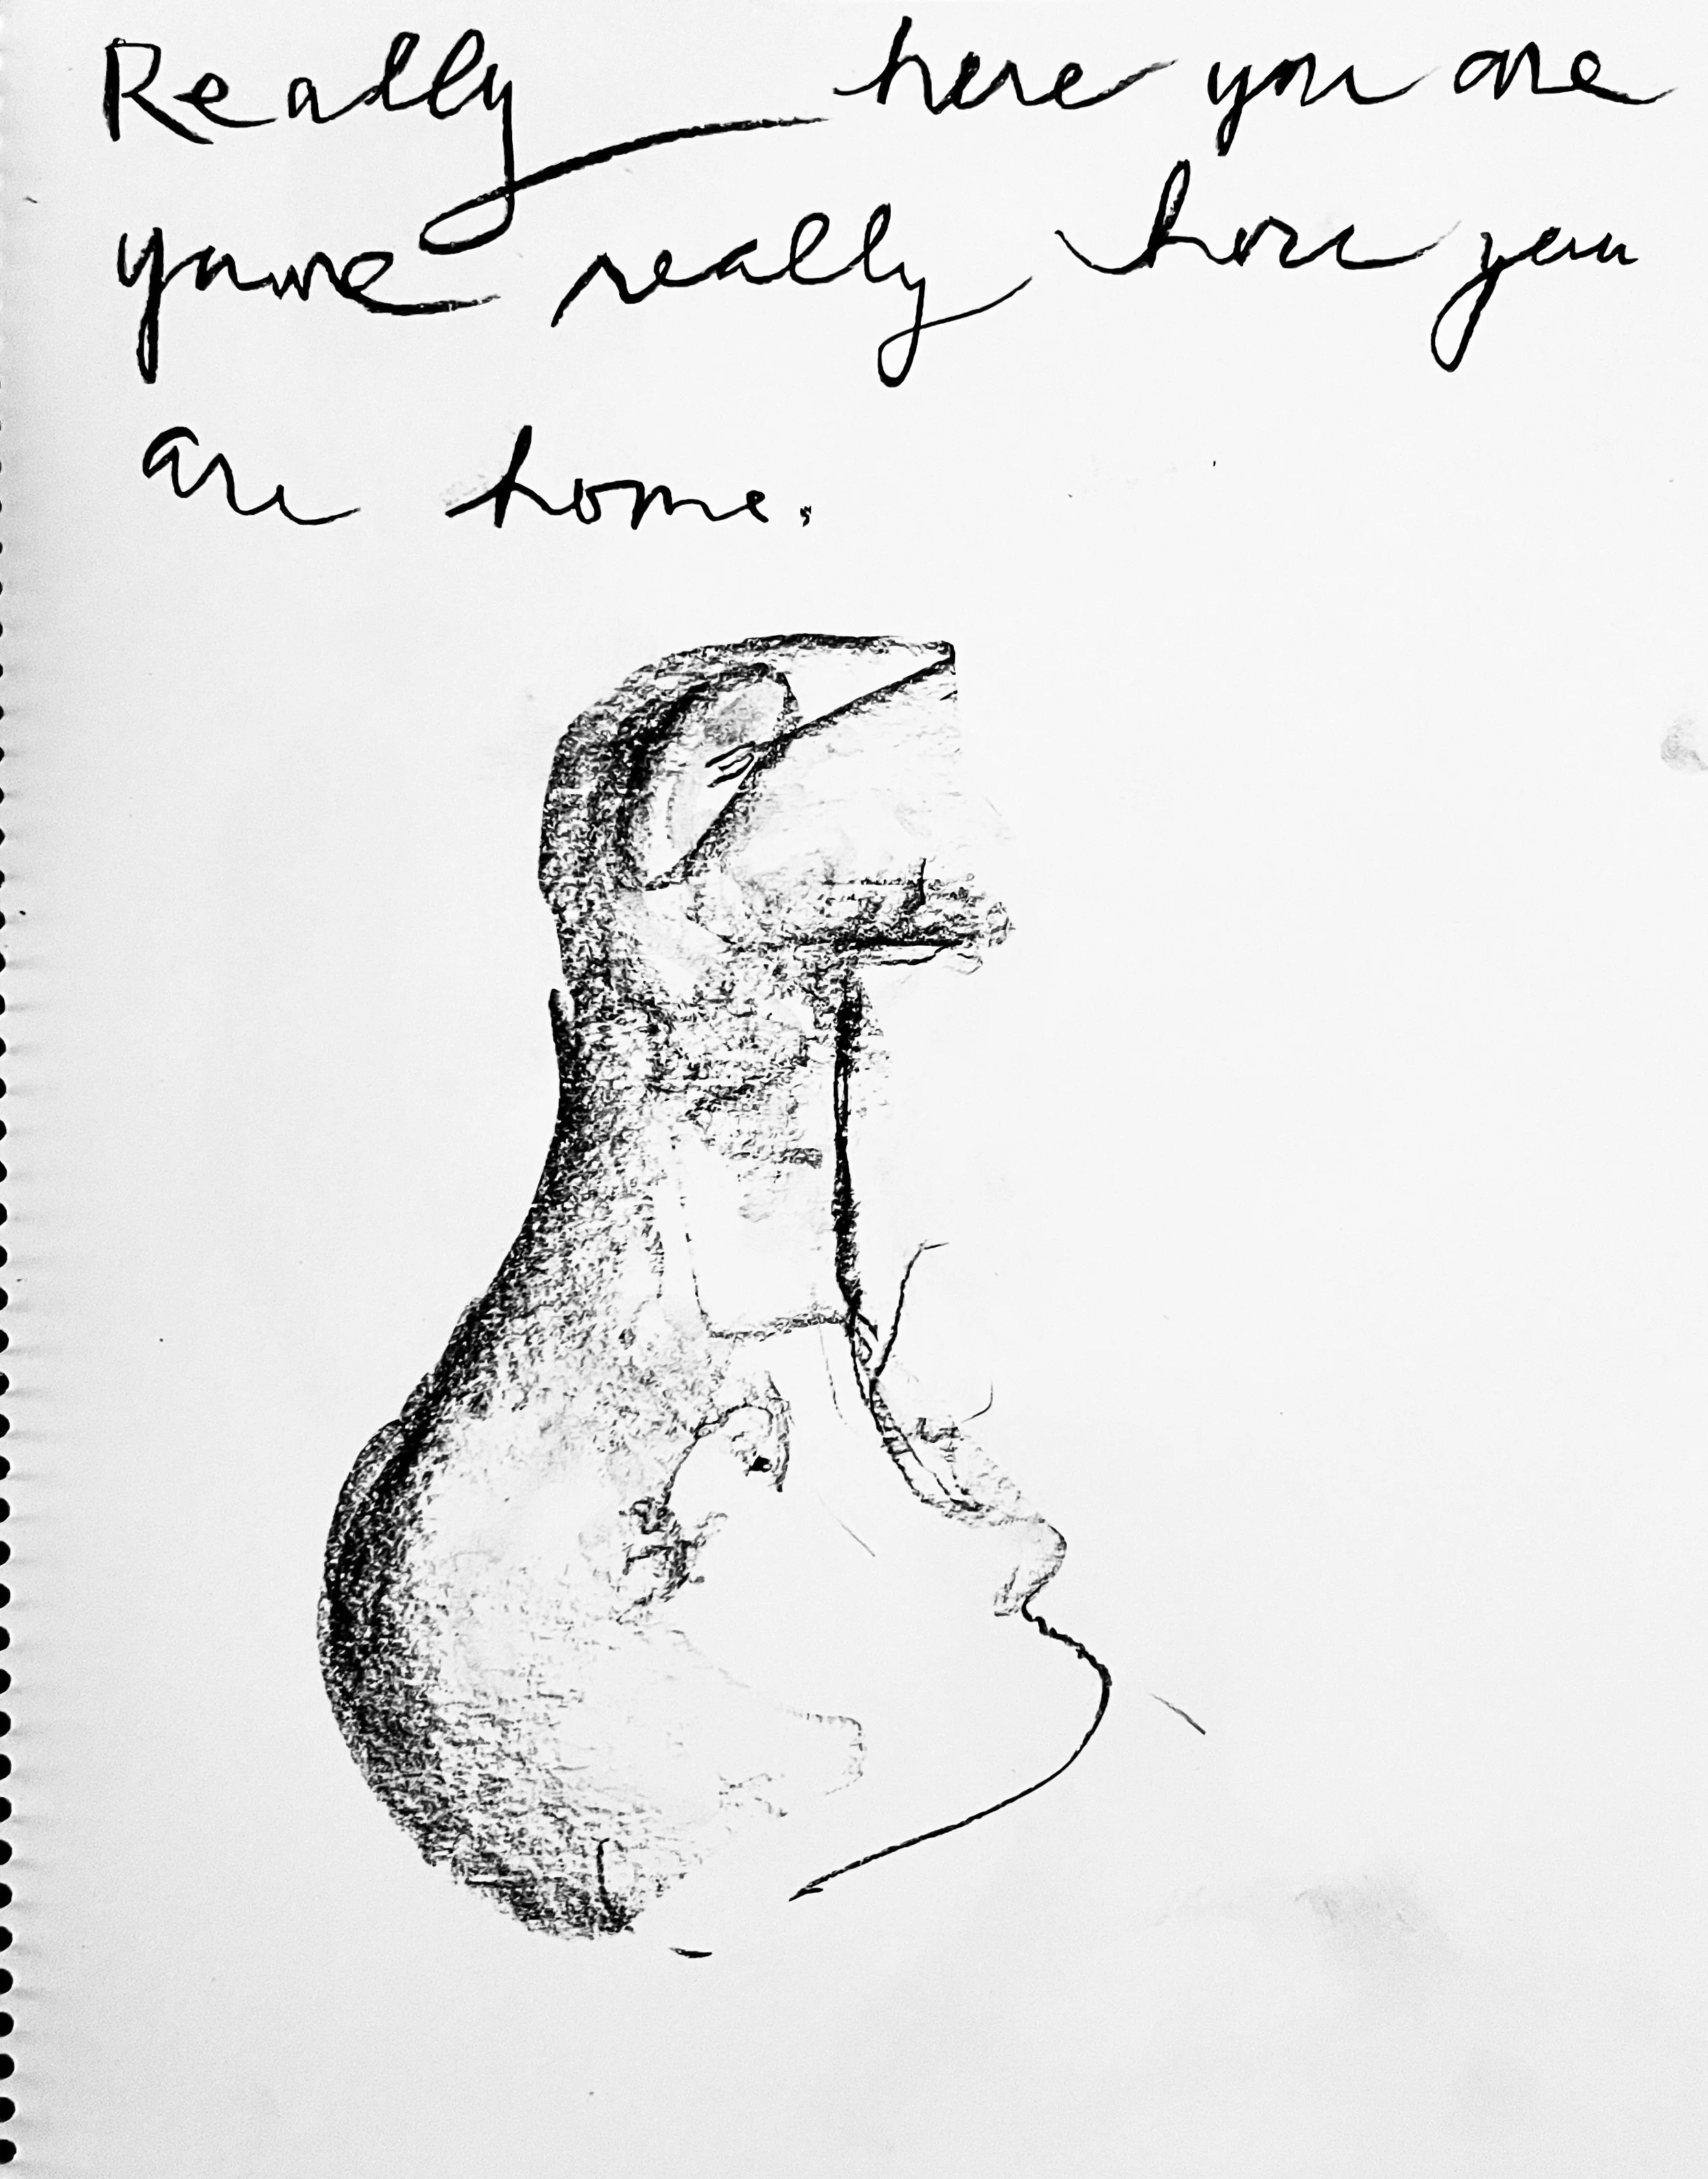 Really here you are
youre really here you
are home.